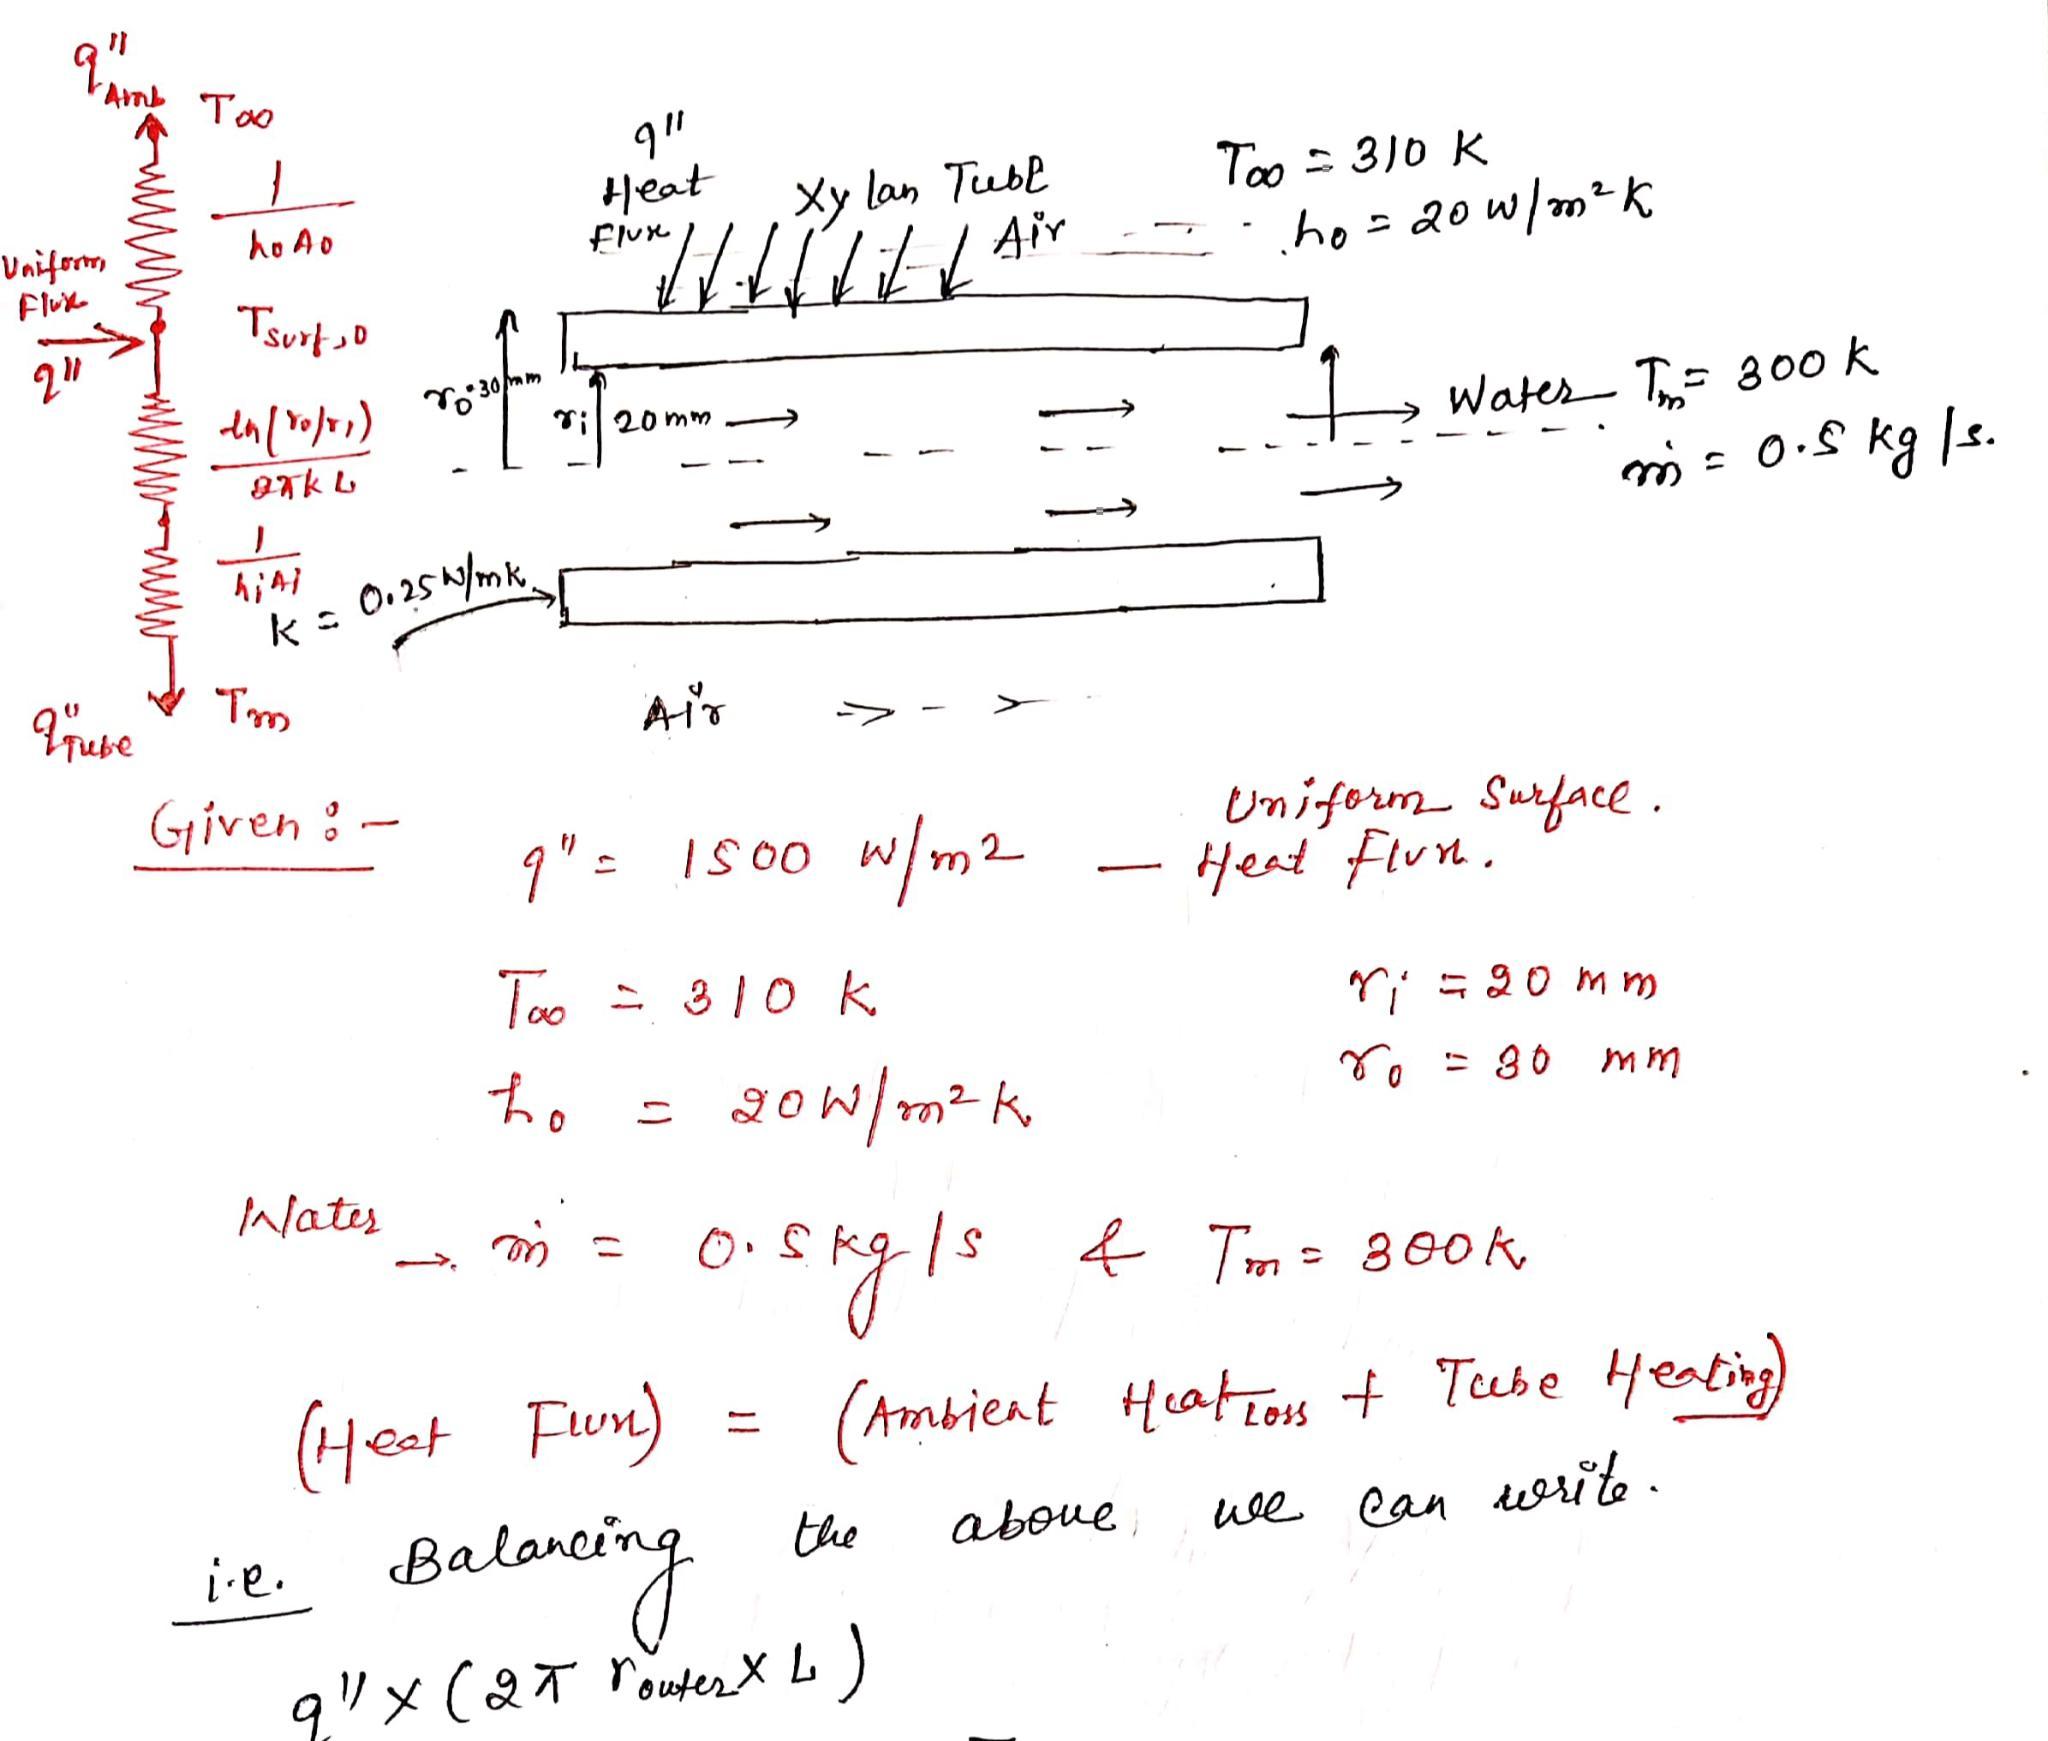 q''Amb
T∞
1
hoAo
Uniform
Flux
q''
Tsurf,o
ln(ro/ri)
2πkL
1
hiAi
q''Tube
Tm
q''
Heat
Flux
Xylan Tube
Air
T∞ = 310 K
ho = 20 W/m²K
ro=30mm
ri 20mm
Water Tm = 300 K
ṁ = 0.5 kg/s.
K = 0.25 W/mK
Air
Given :-
q'' = 1500 W/m2 — Uniform Surface.
Heat Flux.
T∞ = 310 K
ri = 20 mm
ho = 20W/m²K
ro = 30 mm
Water → ṁ = 0.5 kg/s & Tm = 300K
(Heat Flux) = (Ambient Heat Loss + Tube Heating)
i.e. Balancing the above, we can write.
q'' x (2π router x L)